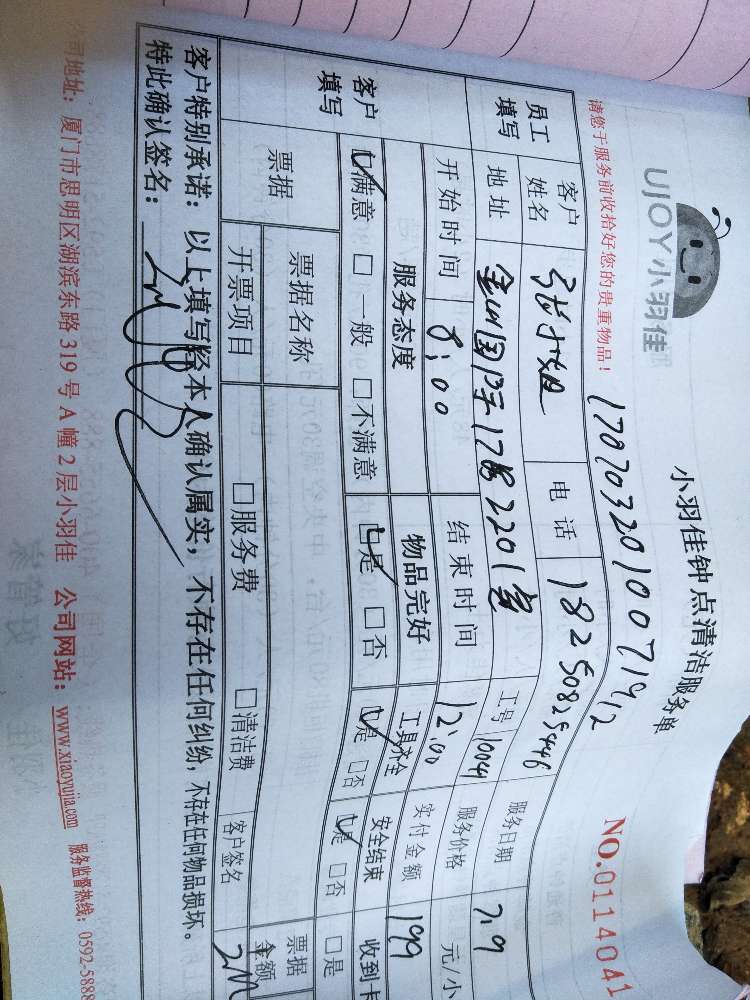 UJOY小羽佳
小羽佳钟点清洁服务单
NO.0114041
请您于服务前收拾好您的贵重物品!
员工填写
客户姓名
张小姐
电话
18250825446
服务日期
7.9
地址
2201室
工号
1004
服务价格
元/小
开始时间
8:00
结束时间
12:00
实付金额
199
客户填写
服务态度
物品完好
工具齐全
安全结束
收到卡
满意 □一般 □不满意
是 □否
是 □否
是 □否
□是
票据
票据名称
开票项目
□服务费
□清洁费
客户签名
票据金额
客户特别承诺:以上填写经本人确认属实,不存在任何纠纷,不存在任何物品损坏。
特此确认签名:
司地址:厦门市思明区湖滨东路319号A幢2层小羽佳 公司网站:www.xiaoyujia.com 服务监督热线:0592-5888